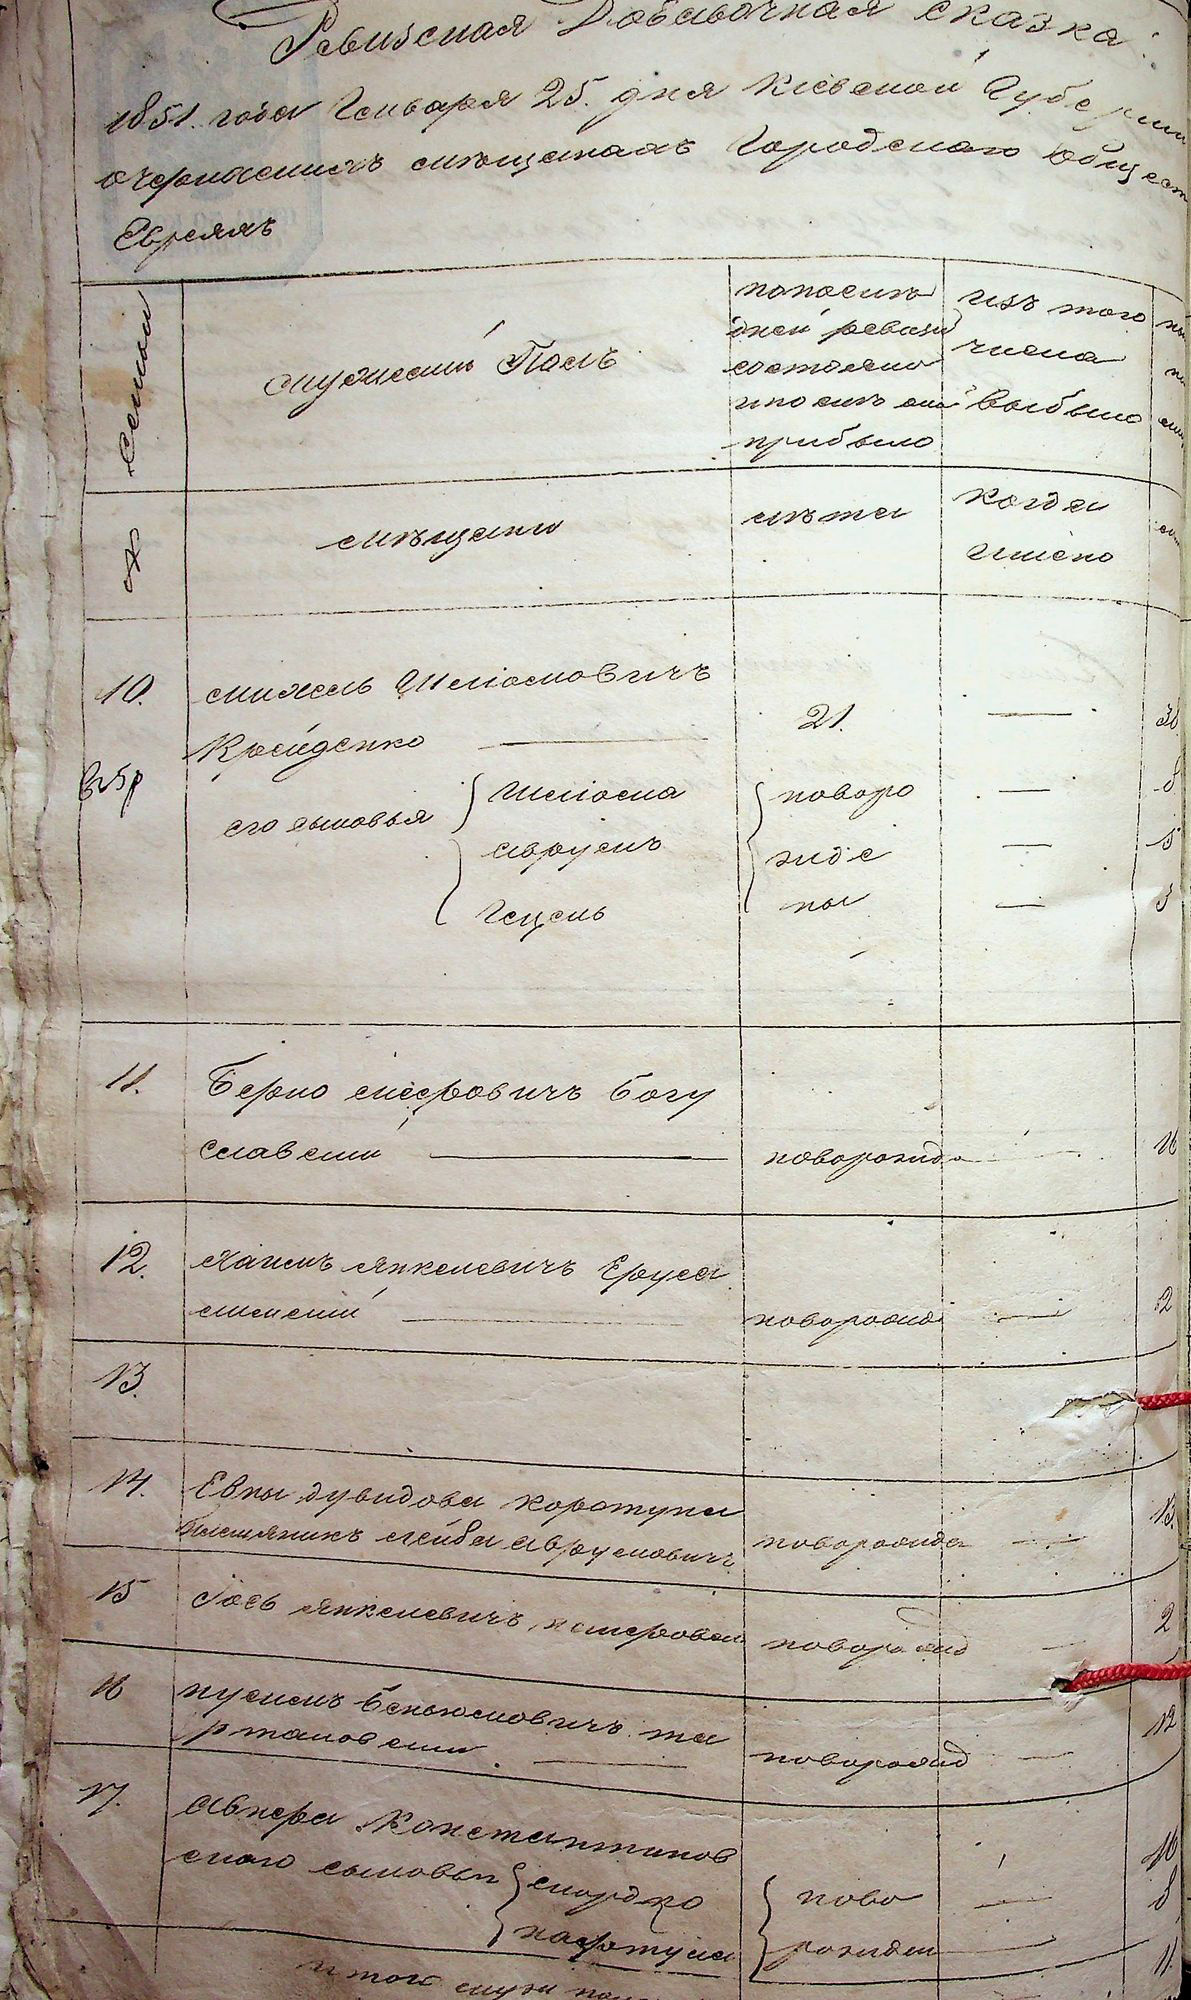 Ревизская Добавочная сказка.
1851. года Генваря 25. дня Кіевской Губерніи
о мещанахъ Городскаго Общест
Евреяхъ
Семьи
мужескій Полъ
по последней ревизіи состояло и после оной прибыло
изъ того числа выбыло
№
мещане
лета
когда имено
10. Михель Шліомовичъ
Крейденко 21. —
его сыновья Шліома новоро — 8
Аврумъ жде — 5
Гецель ны — 3
11. Берко Мееровичъ Богу
славскій новорожд 16
12. Хаимъ Янкелевичъ Еруса
лимскій новорожд — 12
13.
14. Евны Дувидова Коротуна
племяникъ Лейба Аврумовичъ новорожда — 13.
15 Іось Янкелевичъ новорожд — 2
16 Нусимъ Беньюмовичъ Та
ртаковскій новорожд — 12
17. Авнера Константинов
скаго сыновья Мордко ново — 8
Нафтула рожден — 11.
итого